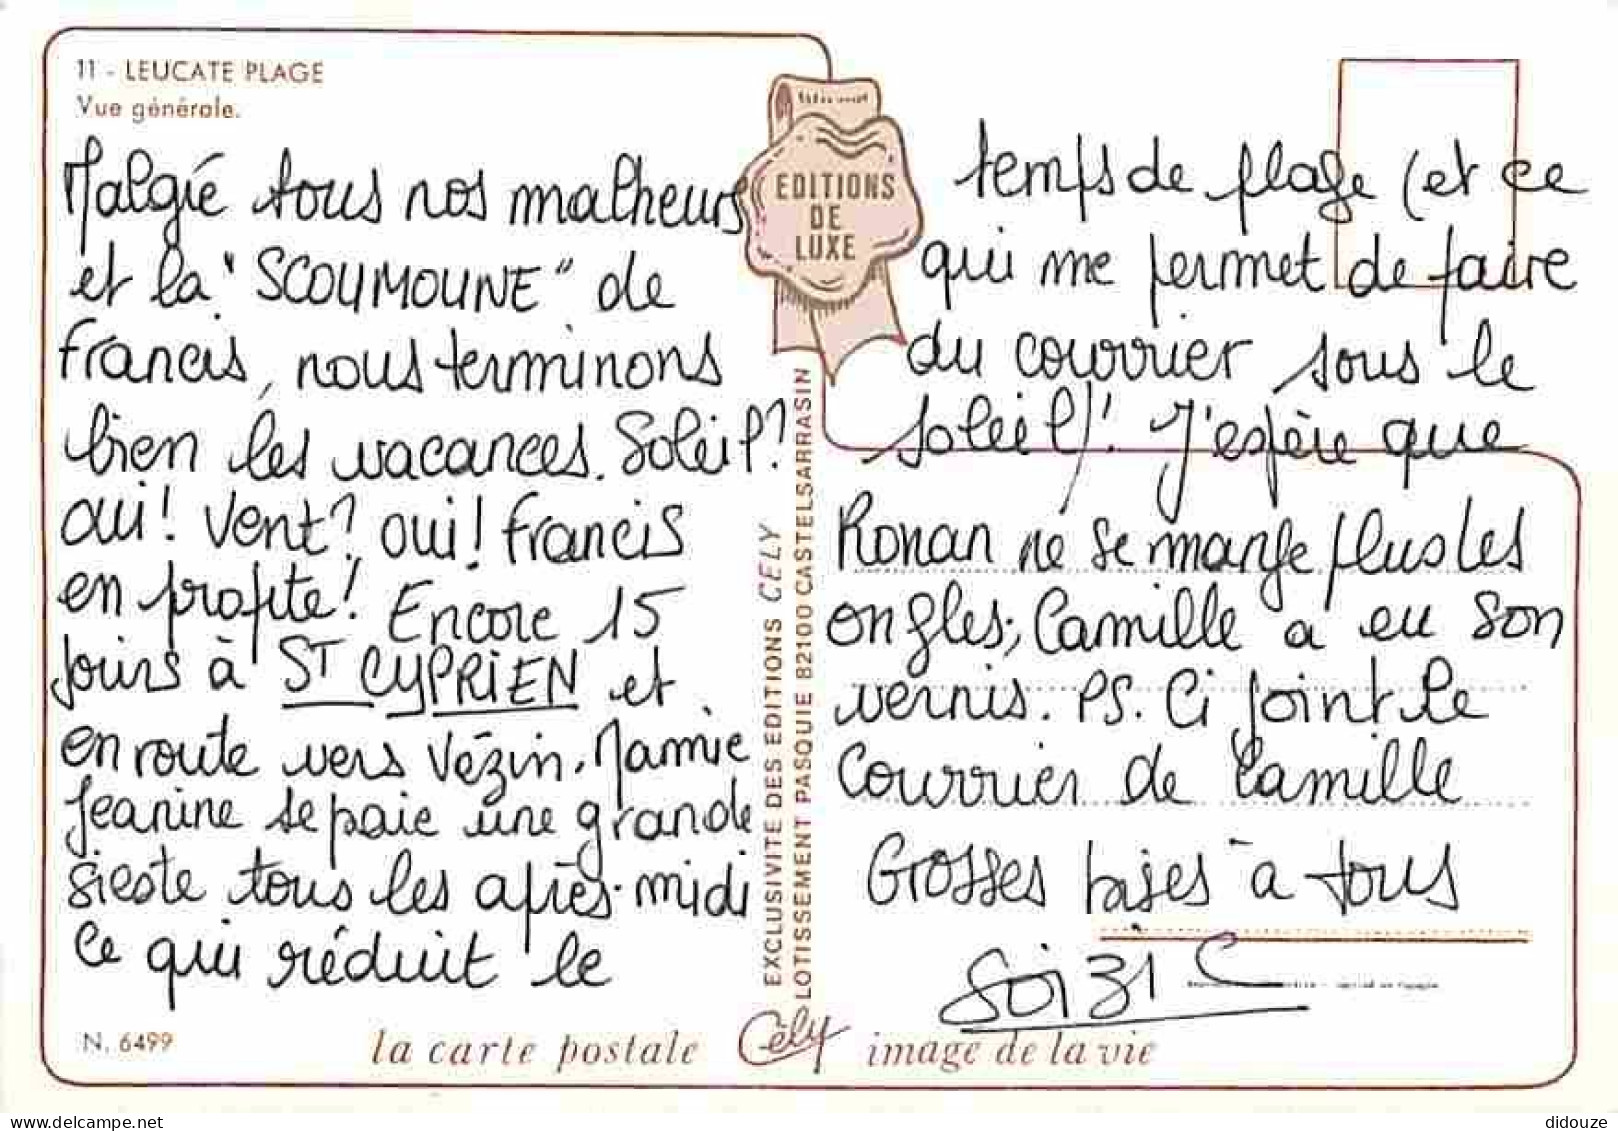 11 - LEUCATE PLAGE
Vue générale.
Malgré tous nos malheurs
et la "SCOUMOUNE" de
Francis, nous terminons
bien les vacances. Soleil?
oui! Vent? oui! Francis
en profite! Encore 15
jours à ST CYPRIEN et
en route vers Vézin. Mamie
Jeanine se paie une grande
sieste tous les après-midi
Ce qui réduit le
EDITIONS
DE
LUXE
temps de plage (et ce
qui me permet de faire
du courrier sous le
soleil)! J'espère que
Ronan ne se mange plus les
ongles; Camille a eu son
vernis. PS. Ci joint le
Courrier de Camille
Grosses bises à tous
Soizic
EXCLUSIVITE DES EDITIONS CELY
LOTISSEMENT PASQUIE 82100 CASTELSARRASIN
N. 6499
la carte postale Cély image de la vie
didouze